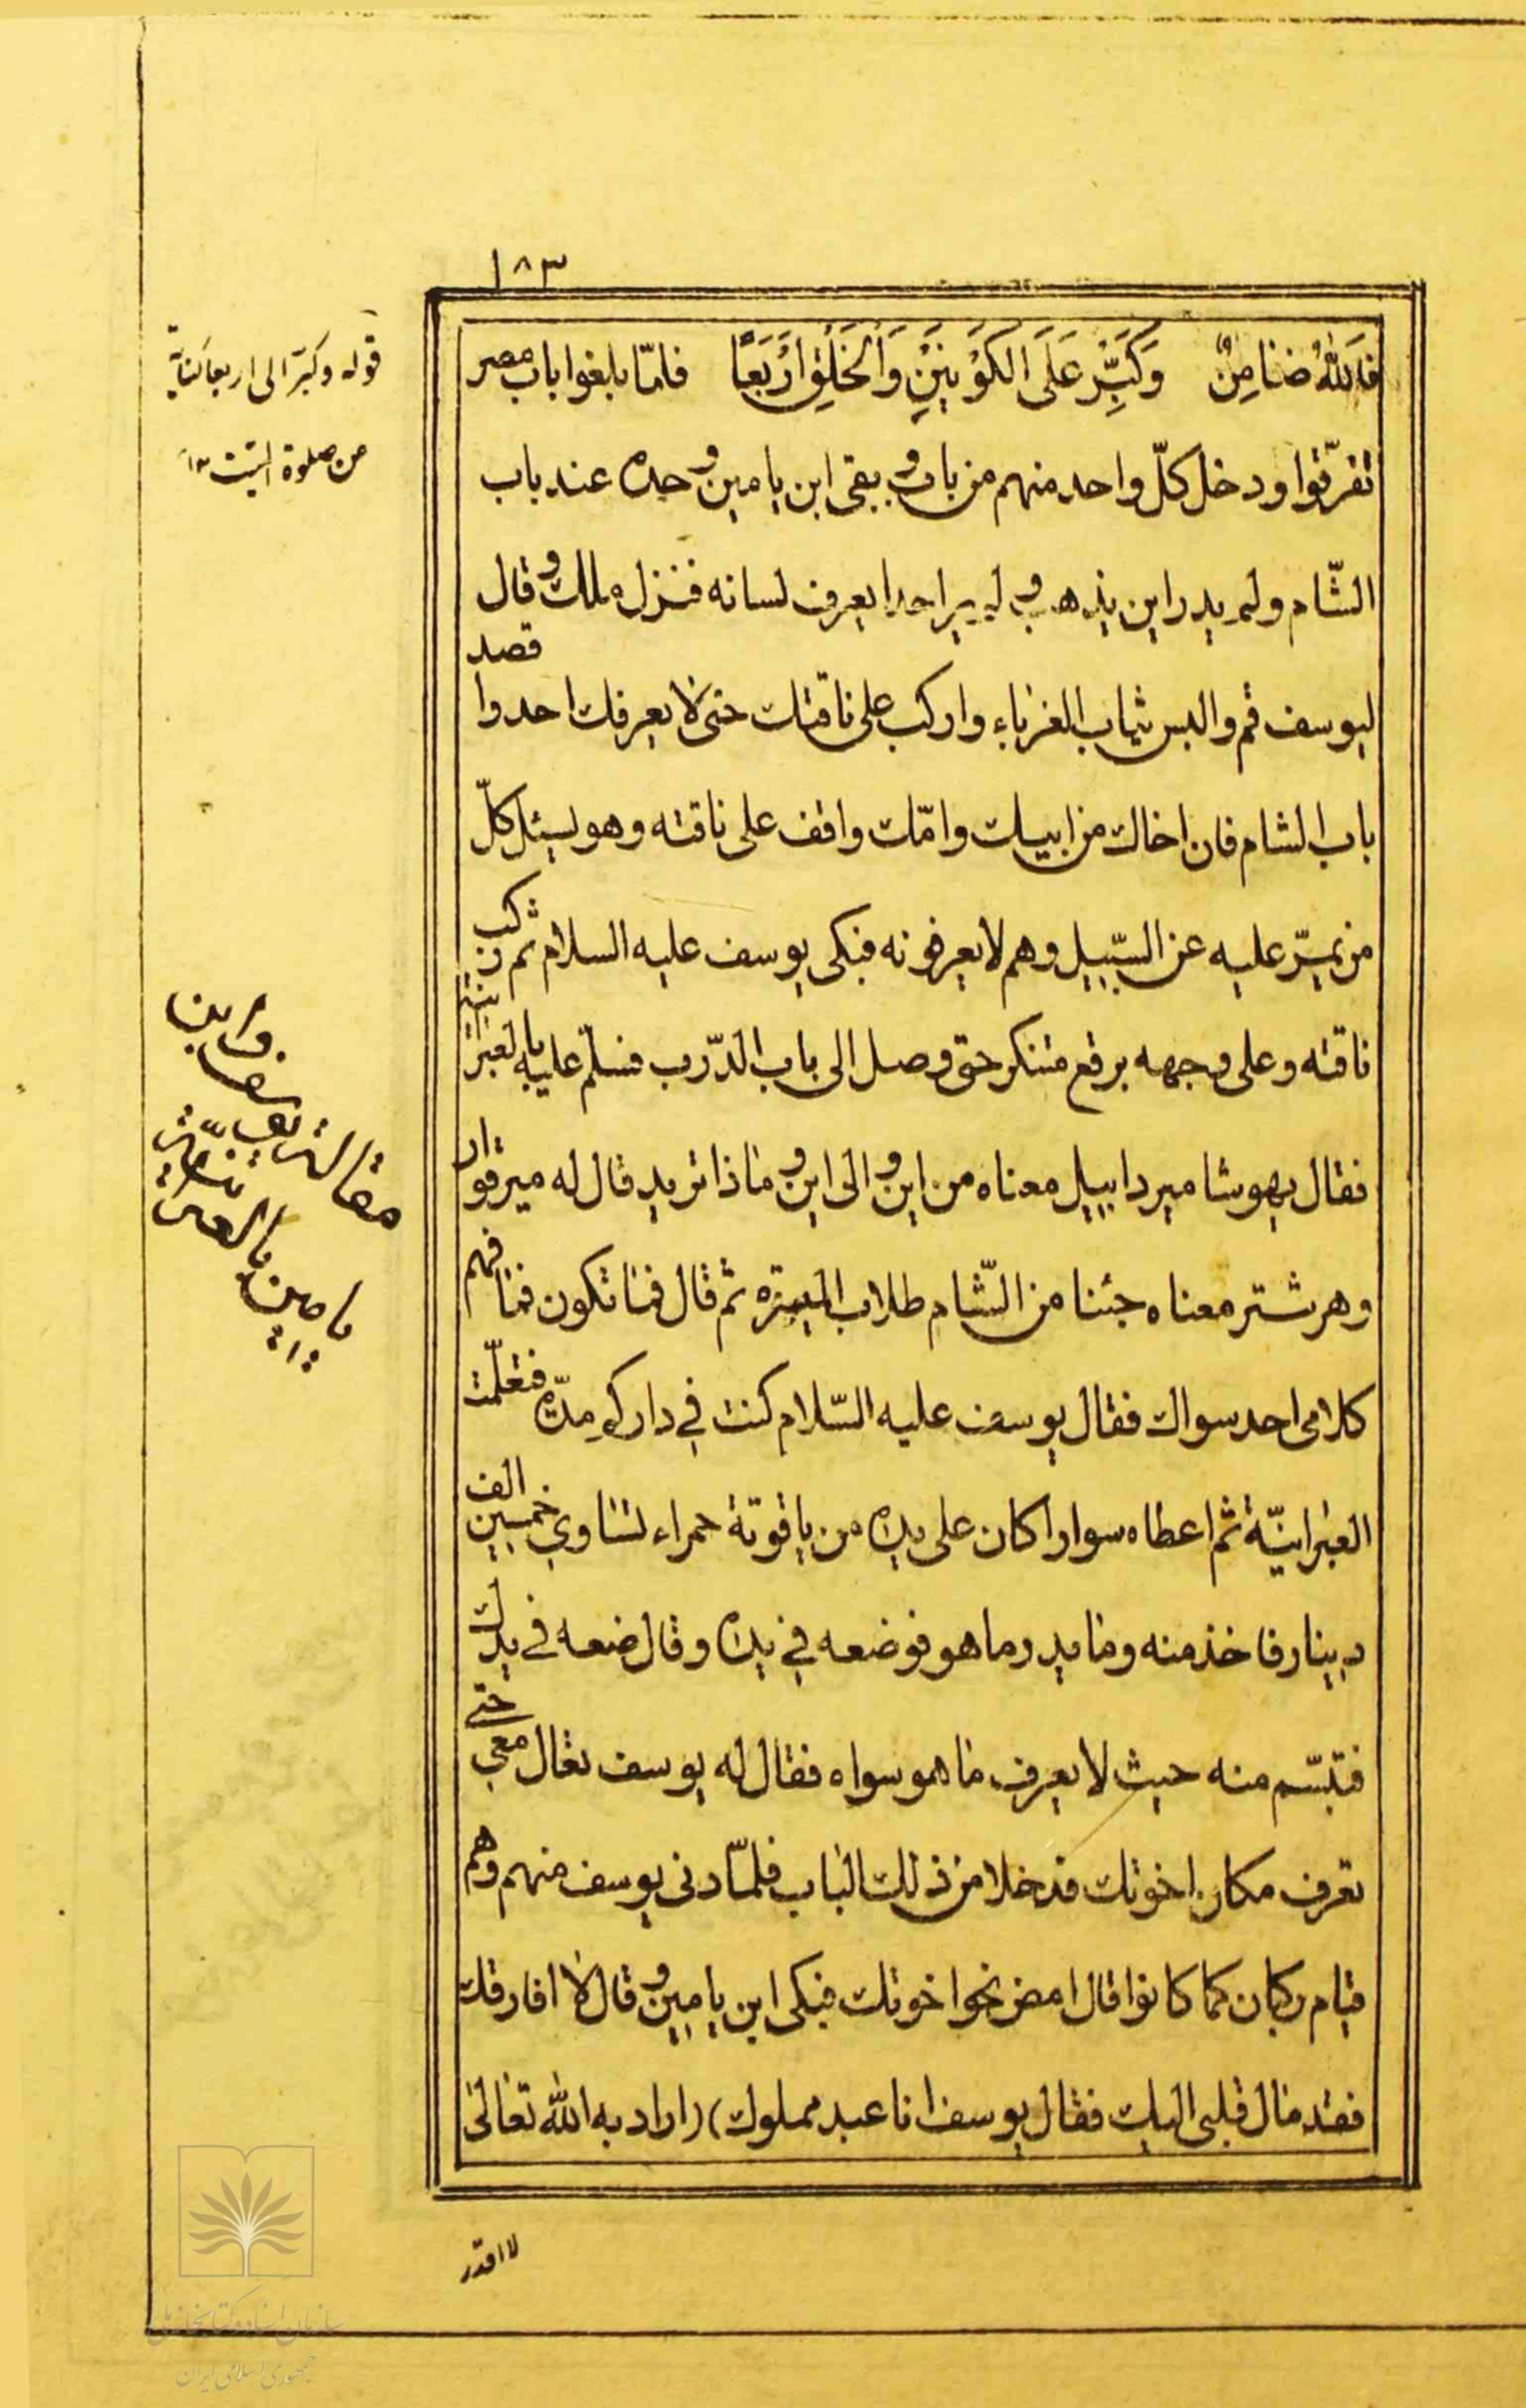 ١٨٣
فَاللّٰهُ ضَامِنٌ وَكَبِّرْ عَلَى الكَوْنَيْنِ وَالْخَلْقِ اَرْبَعًا فلمّا بلغوا باب مصر
تفرّقوا ودخل كلّ واحد منهم من باب وبقى ابن يامين وحده عند باب
الشّام ولم يدر اين يذهب ولم ير احدا يعرف لسانه فنزل ملك وقال
ليوسف قم والبس ثياب الغرباء واركب على ناقتك حتى لا يعرفك احد واقصد
باب الشام فان اخاك من ابيك وامّك واقف على ناقته وهو يسئل كلّ
من يمرّ عليه عن السّبيل وهم لا يعرفونه فبكى يوسف عليه السلام ثم ركب
ناقته وعلى وجهه برقع متنكر حتى وصل الى باب الدّرب فسلّم عليه بالعبرانيّة
فقال يهوشا ميردابيل معناه من اين والى اين وماذا تريد قال له ميرقوار
وهرشتر معناه جئنا من الشّام طلاب الميرة ثم قال فما تكون فما فهم
كلامى احد سواك فقال يوسف عليه السّلام كنت في داركم مدّة فتعلّمت
العبرانيّة ثم اعطاه سوارا كان على يده من ياقوتة حمراء تساوي خمسين الف
دينار فاخذ منه وما يدر ما هو فوضعه في يده وقال ضعه في يدك
فتبسّم منه حيث لا يعرف ما هو سواه فقال له يوسف تعال معي حتى
تعرف مكان اخوتك فدخلا من ذلك الباب فلمّا دنى يوسف منهم وهم
قيام ركبان كما كانوا قال امض نحو اخوتك فبكى ابن يامين وقال لا افارقك
فقد مال قلبى اليك فقال يوسف انا عبد مملوك (اراد به الله تعالى
لا اقدر
قوله وكبّر الى اربعا كناية
من صلوة الميّت ١٢
يوسف وابن
يامين بالعبرانية
سازمان اسناد و کتابخانه ملی
جمهوری اسلامی ایران